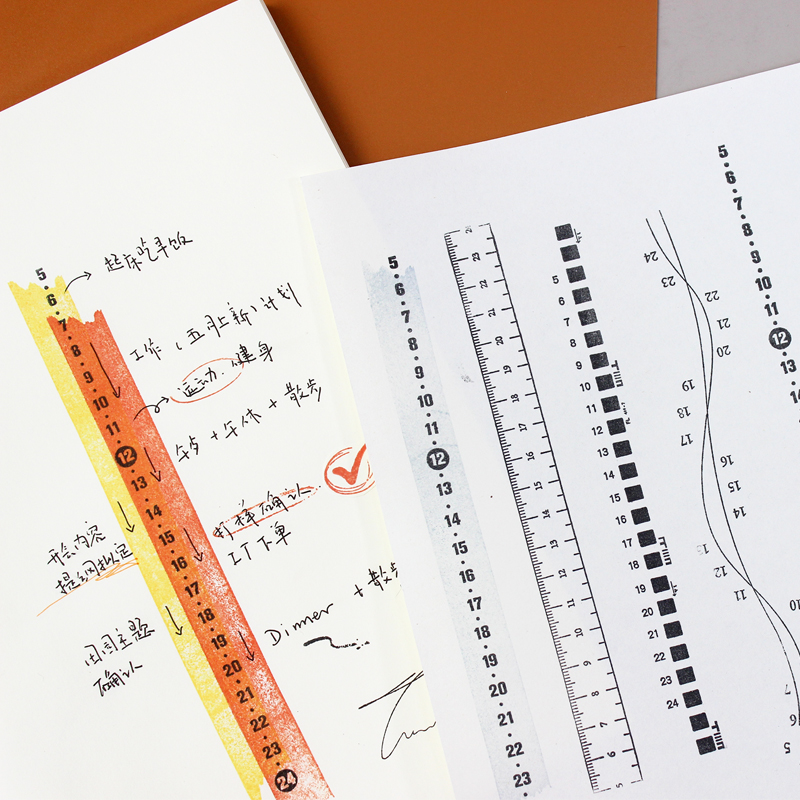 起床吃早饭
工作（五月上新）计划
运动.健身
午歺+午休+散步
打样确认
LT下单
Dinner + 散步
开会内容
提纲拟定
田间主题
确认
5
6
7
8
9
10
11
12
13
14
15
16
17
18
19
20
21
22
23
24
5
6
7
8
9
10
11
12
13
14
15
16
17
18
19
20
21
22
23
23
22
21
20
19
18
17
16
15
14
13
12
11
10
9
8
7
6
5
5
6
7
8
9
10
11
12
13
14
15
16
17
18
19
20
21
22
23
24
24
23
22
21
20
19
18
17
16
15
14
13
12
11
10
7
6
5
5
6
7
8
9
10
11
12
13